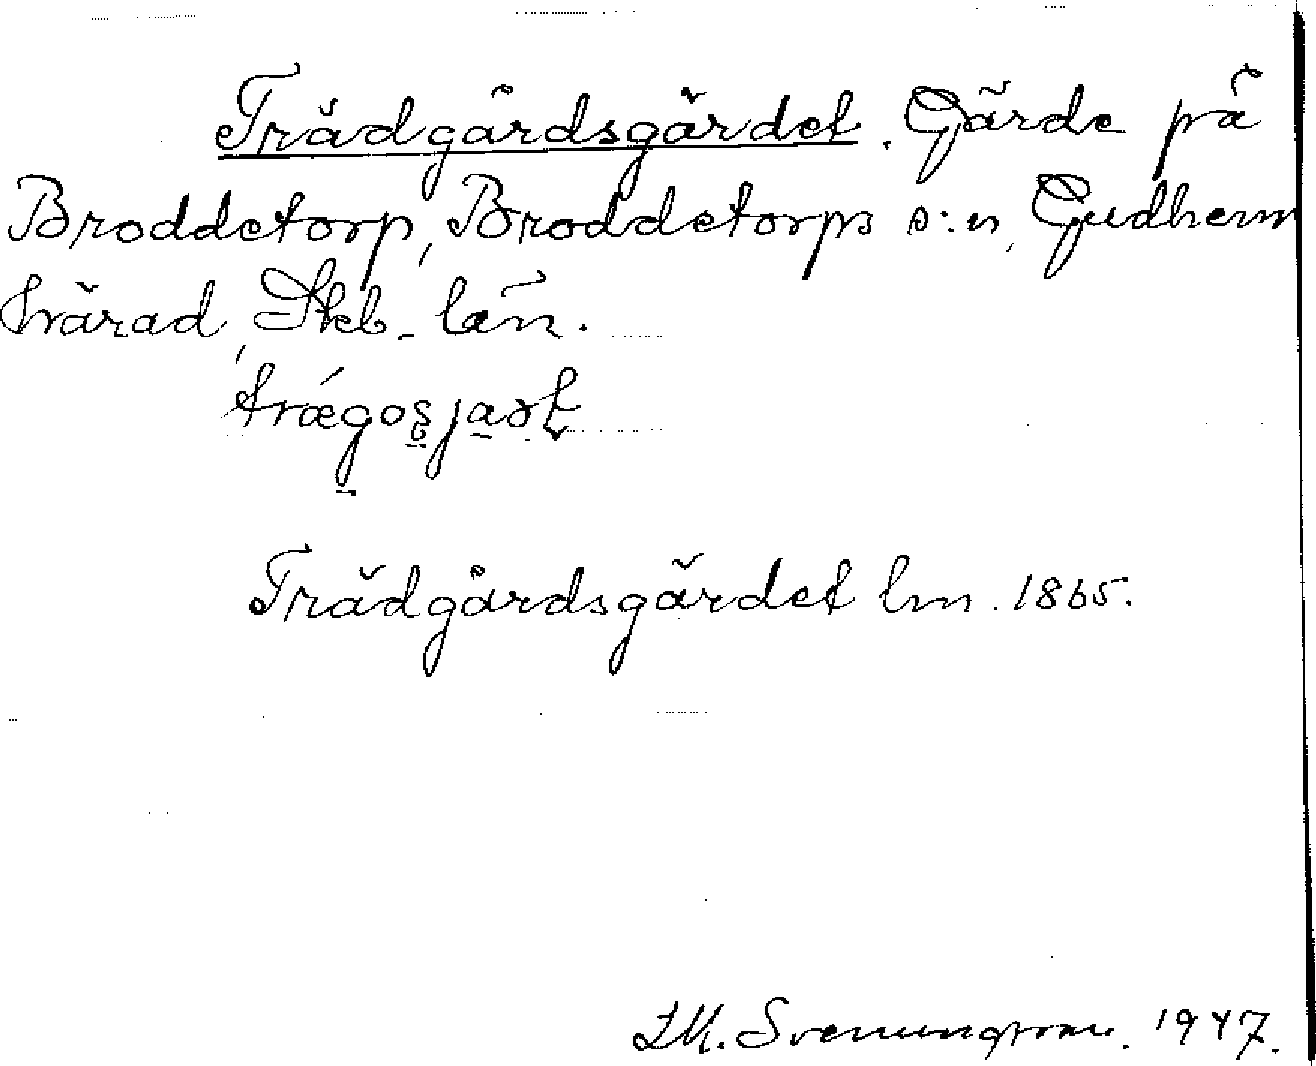 Trädgårdsgärdet. Gärde på
Broddetorp, Broddetorps s:n, Gudhem
härad, Skb. län.
Trädgårdsgärdet lm. 1865.
J.M. Svenungsson. 1947.